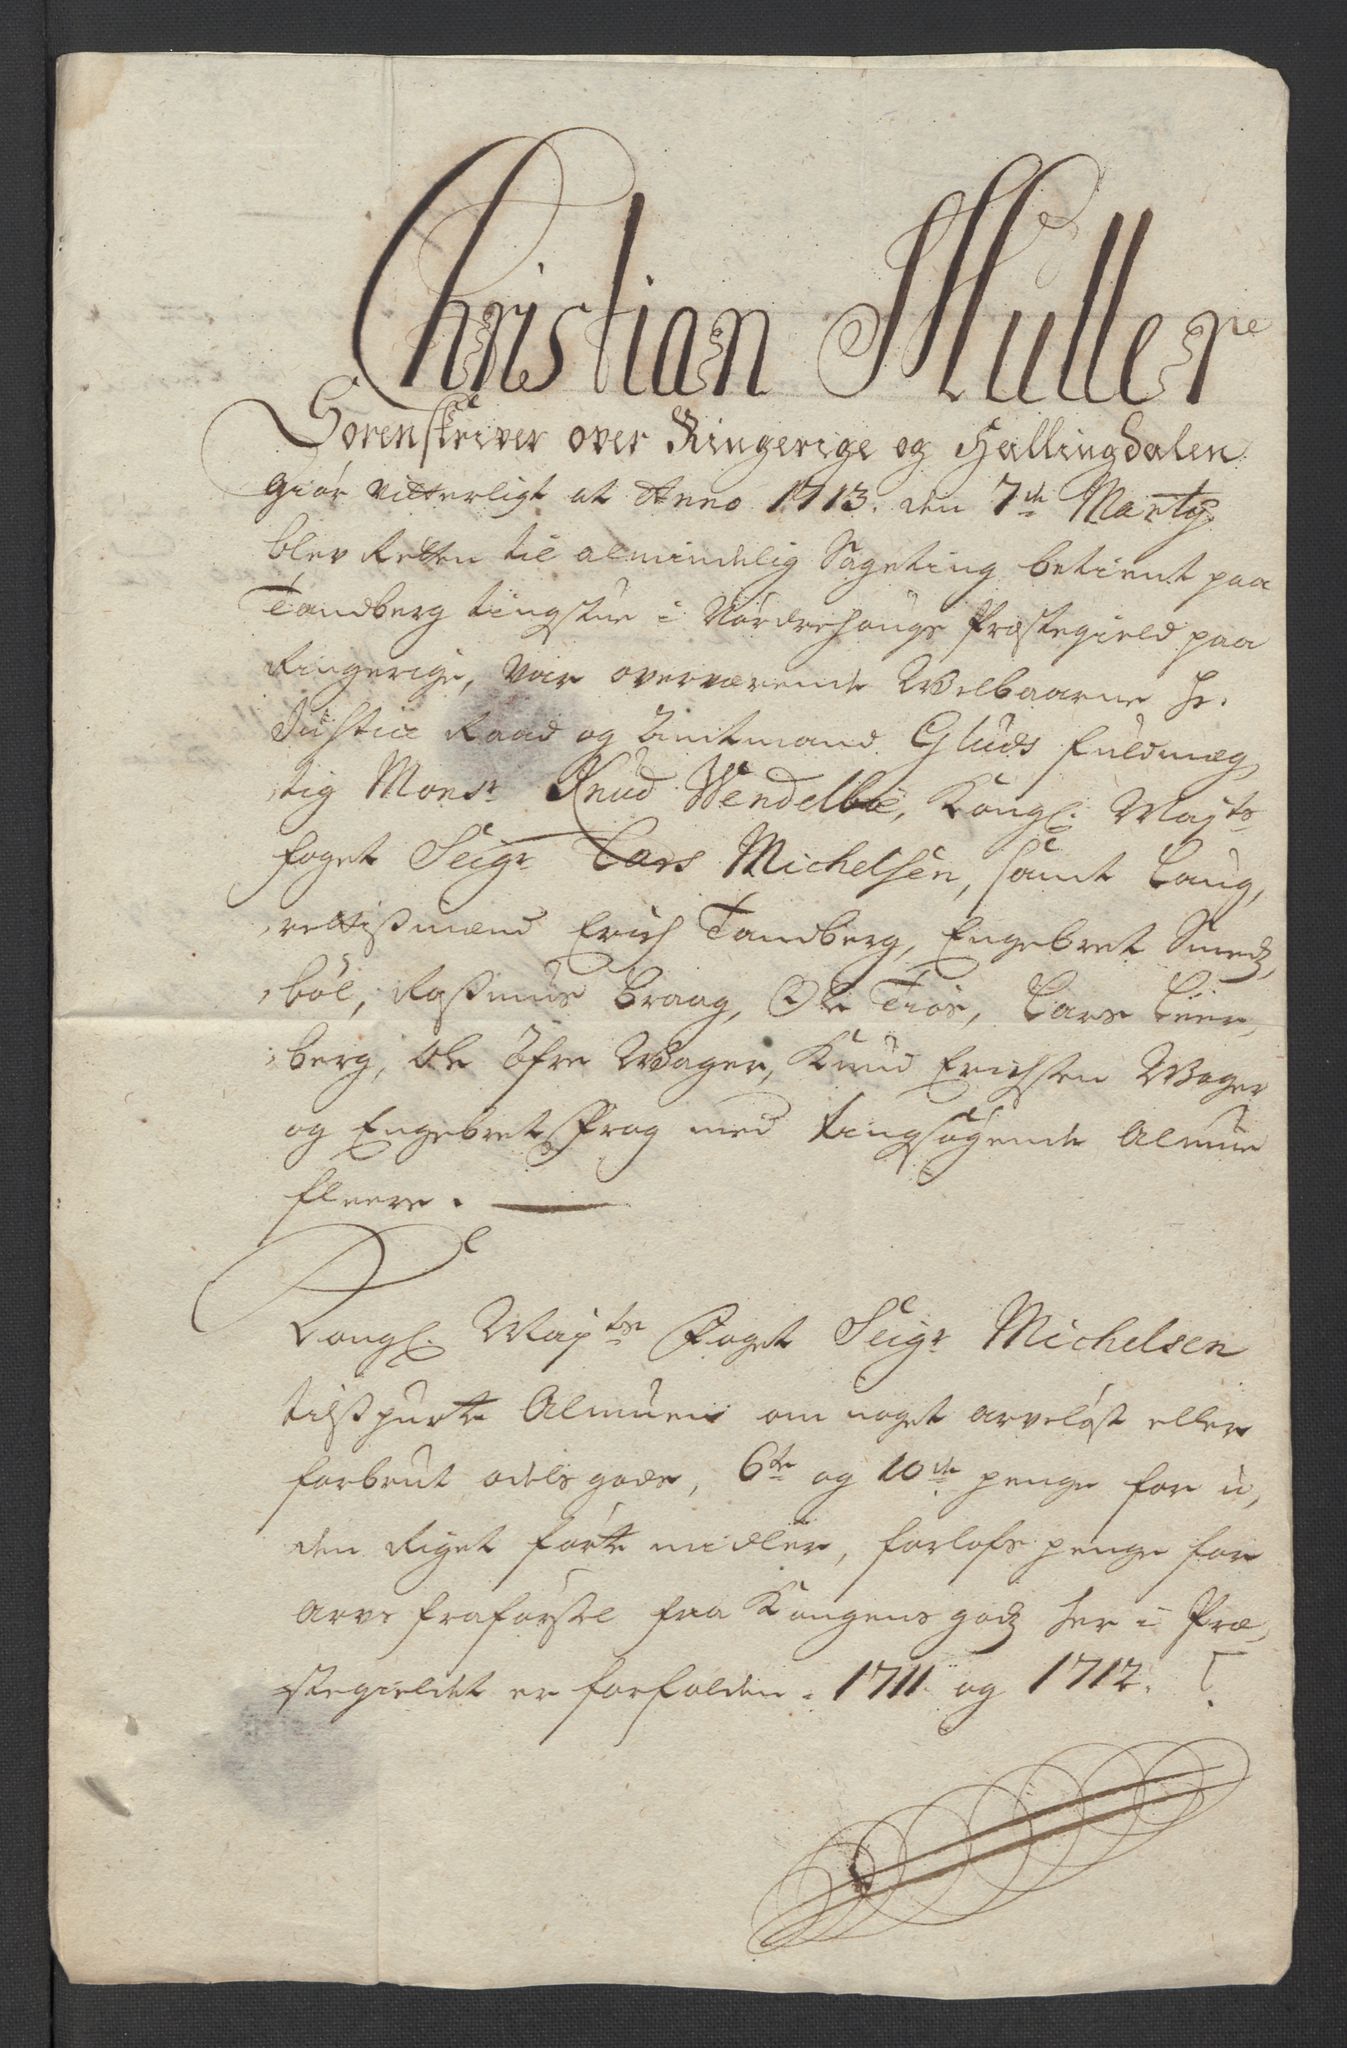 Christian Muller
Sorenskriver over Ringerige og Hallingdalen
Giør vitterligt at Anno 1713. den 7de Martij
blev Retten til almindelig Sageting betient paa
Tandberg tingstue i Nordrehougs Præstegield paa
Ringerige, var overværende Welbaarne Hr.
Justice Raad og Amtmand Gluds fuldmæg,
tig Monsr Knud Wendelboe, Kongl. Majts
foget Seigr Lars Michelsen, samt Laug,
rettissmænd Erich Tandberg, Engebret Smedz,
bøl, Rassmus Braag, Ole Tiøs, Lars Leer,
berg, Ole Øfre Wager, Knud Erichsen Wager
og Engebret Prag med tingsøgende Almue
fleere.
Kongl. Majts Foget Seigr Michelsen
tilsspurte Almuen om noget arveløst eller
forbrut odels gods, 6te og 10de penge for u,
den Riget førte midler, forlofs penge for
arvs fraførsel fra Kongens godz her i Præ,
stegieldet er forfalden. 1711 og 1712. ?